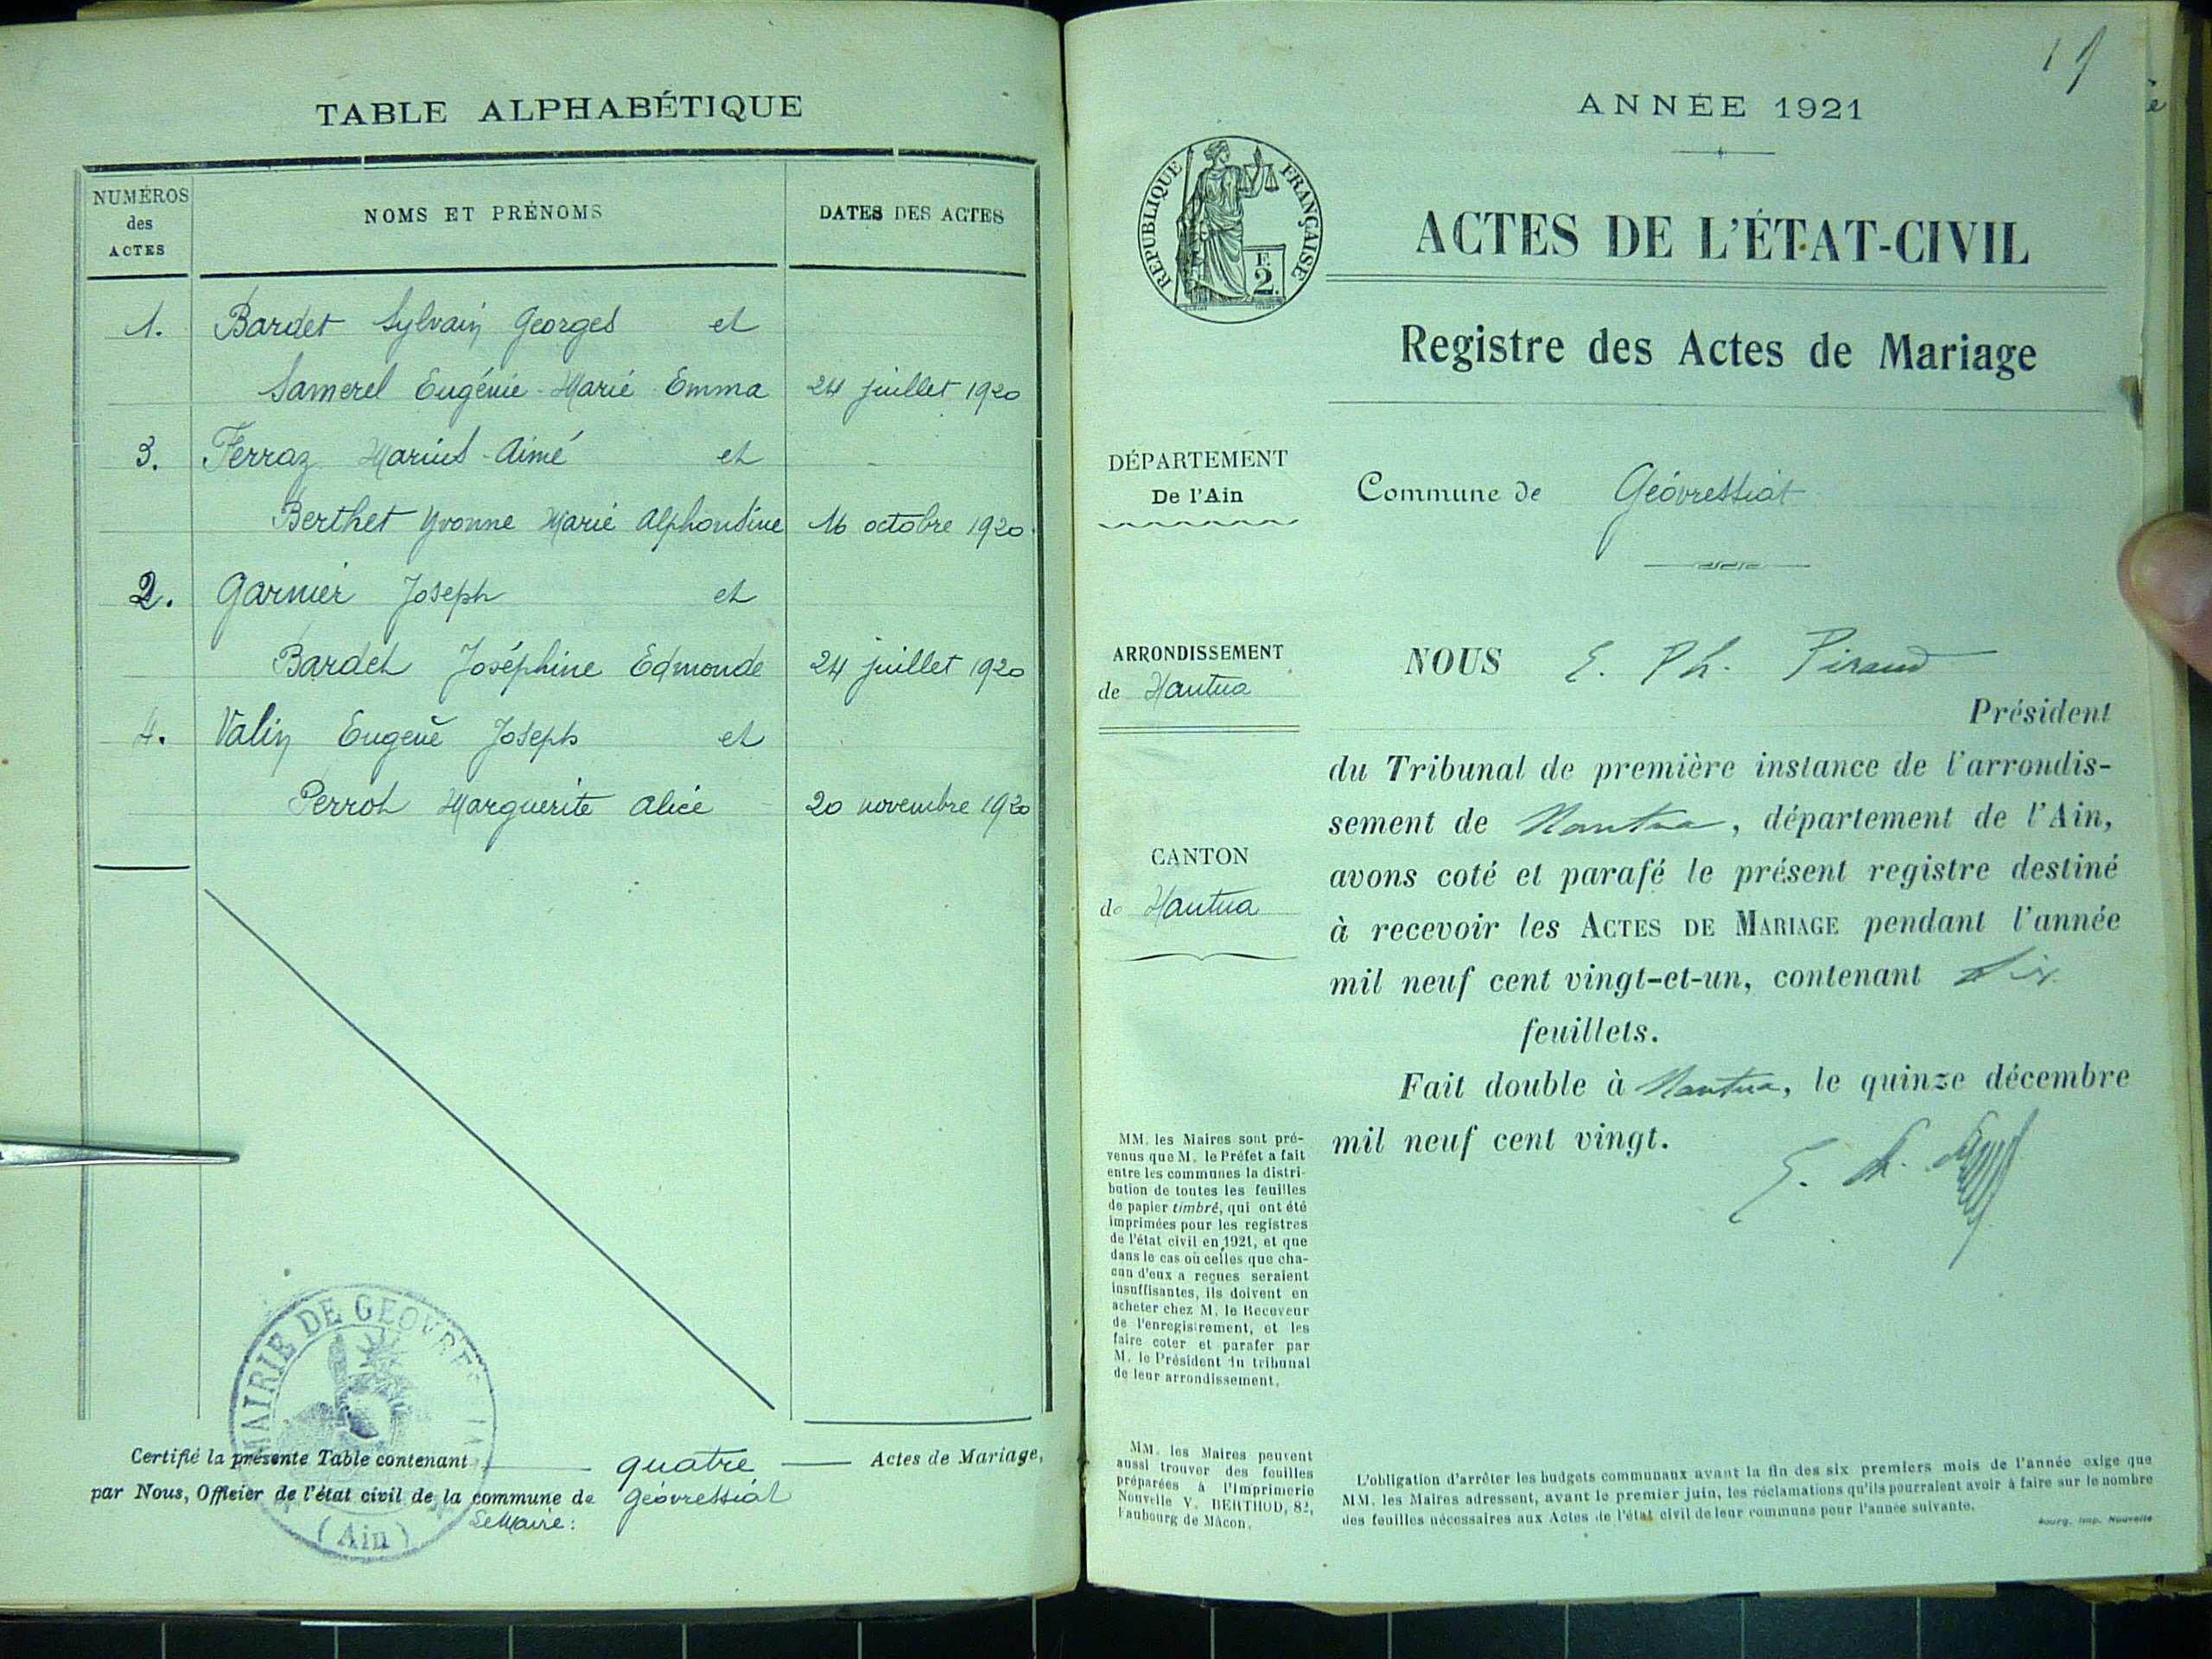 TABLE ALPHABÉTIQUE
NUMÉROS
des
ACTES
NOMS ET PRÉNOMS
DATES DES ACTES
1. Bardet Sylvain Georges et
Samerel Eugénie-Marie Emma 24 juillet 1920
3. Ferraz Marius-Aimé et
Berthet Yvonne Marie Alphonsine 16 octobre 1920.
2. Garnier Joseph et
Bardet Joséphine Edmonde 24 juillet 1920
4. Valin Eugène Joseph et
Perrot Marguerite Alice 20 novembre 1920
MAIRIE DE GEOVRE
(Ain)
Certifié la présente Table contenant quatre Actes de Mariage,
par Nous, Officier de l'état civil de la commune de Géovressiat
Le Maire:
19
ANNÉE 1921
RÉPUBLIQUE FRANÇAISE
F.
2.
ACTES DE L'ÉTAT-CIVIL
Registre des Actes de Mariage
DÉPARTEMENT
De l'Ain
Commune de Géovressiat
ARRONDISSEMENT
de Nantua
CANTON
de Nantua
NOUS E. Ph. Piraud
Président
du Tribunal de première instance de l'arrondis-
sement de Nantua, département de l'Ain,
avons coté et parafé le présent registre destiné
à recevoir les ACTES DE MARIAGE pendant l'année
mil neuf cent vingt-et-un, contenant six
feuillets.
Fait double à Nantua, le quinze décembre
mil neuf cent vingt.
MM. les Maires sont pré-
venus que M. le Préfet a fait
entre les communes la distri-
bution de toutes les feuilles
de papier timbré, qui ont été
imprimées pour les registres
de l'état civil en 1921, et que
dans le cas où celles que cha-
cun d'eux a reçues seraient
insuffisantes, ils doivent en
acheter chez M. le Receveur
de l'enregistrement, et les
faire coter et parafer par
M. le Président du tribunal
de leur arrondissement.
MM. les Maires peuvent
aussi trouver des feuilles
préparées à l'Imprimerie
Nouvelle V. BERTHOD, 82,
Faubourg de Mâcon.
L'obligation d'arrêter les budgets communaux avant la fin des six premiers mois de l'année exige que
MM. les Maires adressent, avant le premier juin, les réclamations qu'ils pourraient avoir à faire sur le nombre
des feuilles nécessaires aux Actes de l'état civil de leur commune pour l'année suivante.
Bourg, Imp. Nouvelle